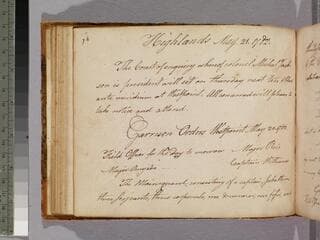 Highlands May. 21. 1782.
The Court of enquiry whereof colonel Michael Jack
son is president will set on thursday next ten o'Clock
ante meridiem at Westpoint. All concerned will please to
take notice and attend.
Garrison Orders Westpoint, May 21. 1782
Field Officer for the day to morrow Major
Major Captain Williams
The Main guard, consisting of a captain,
three serjeants, three corporals, one drummer, one fife and